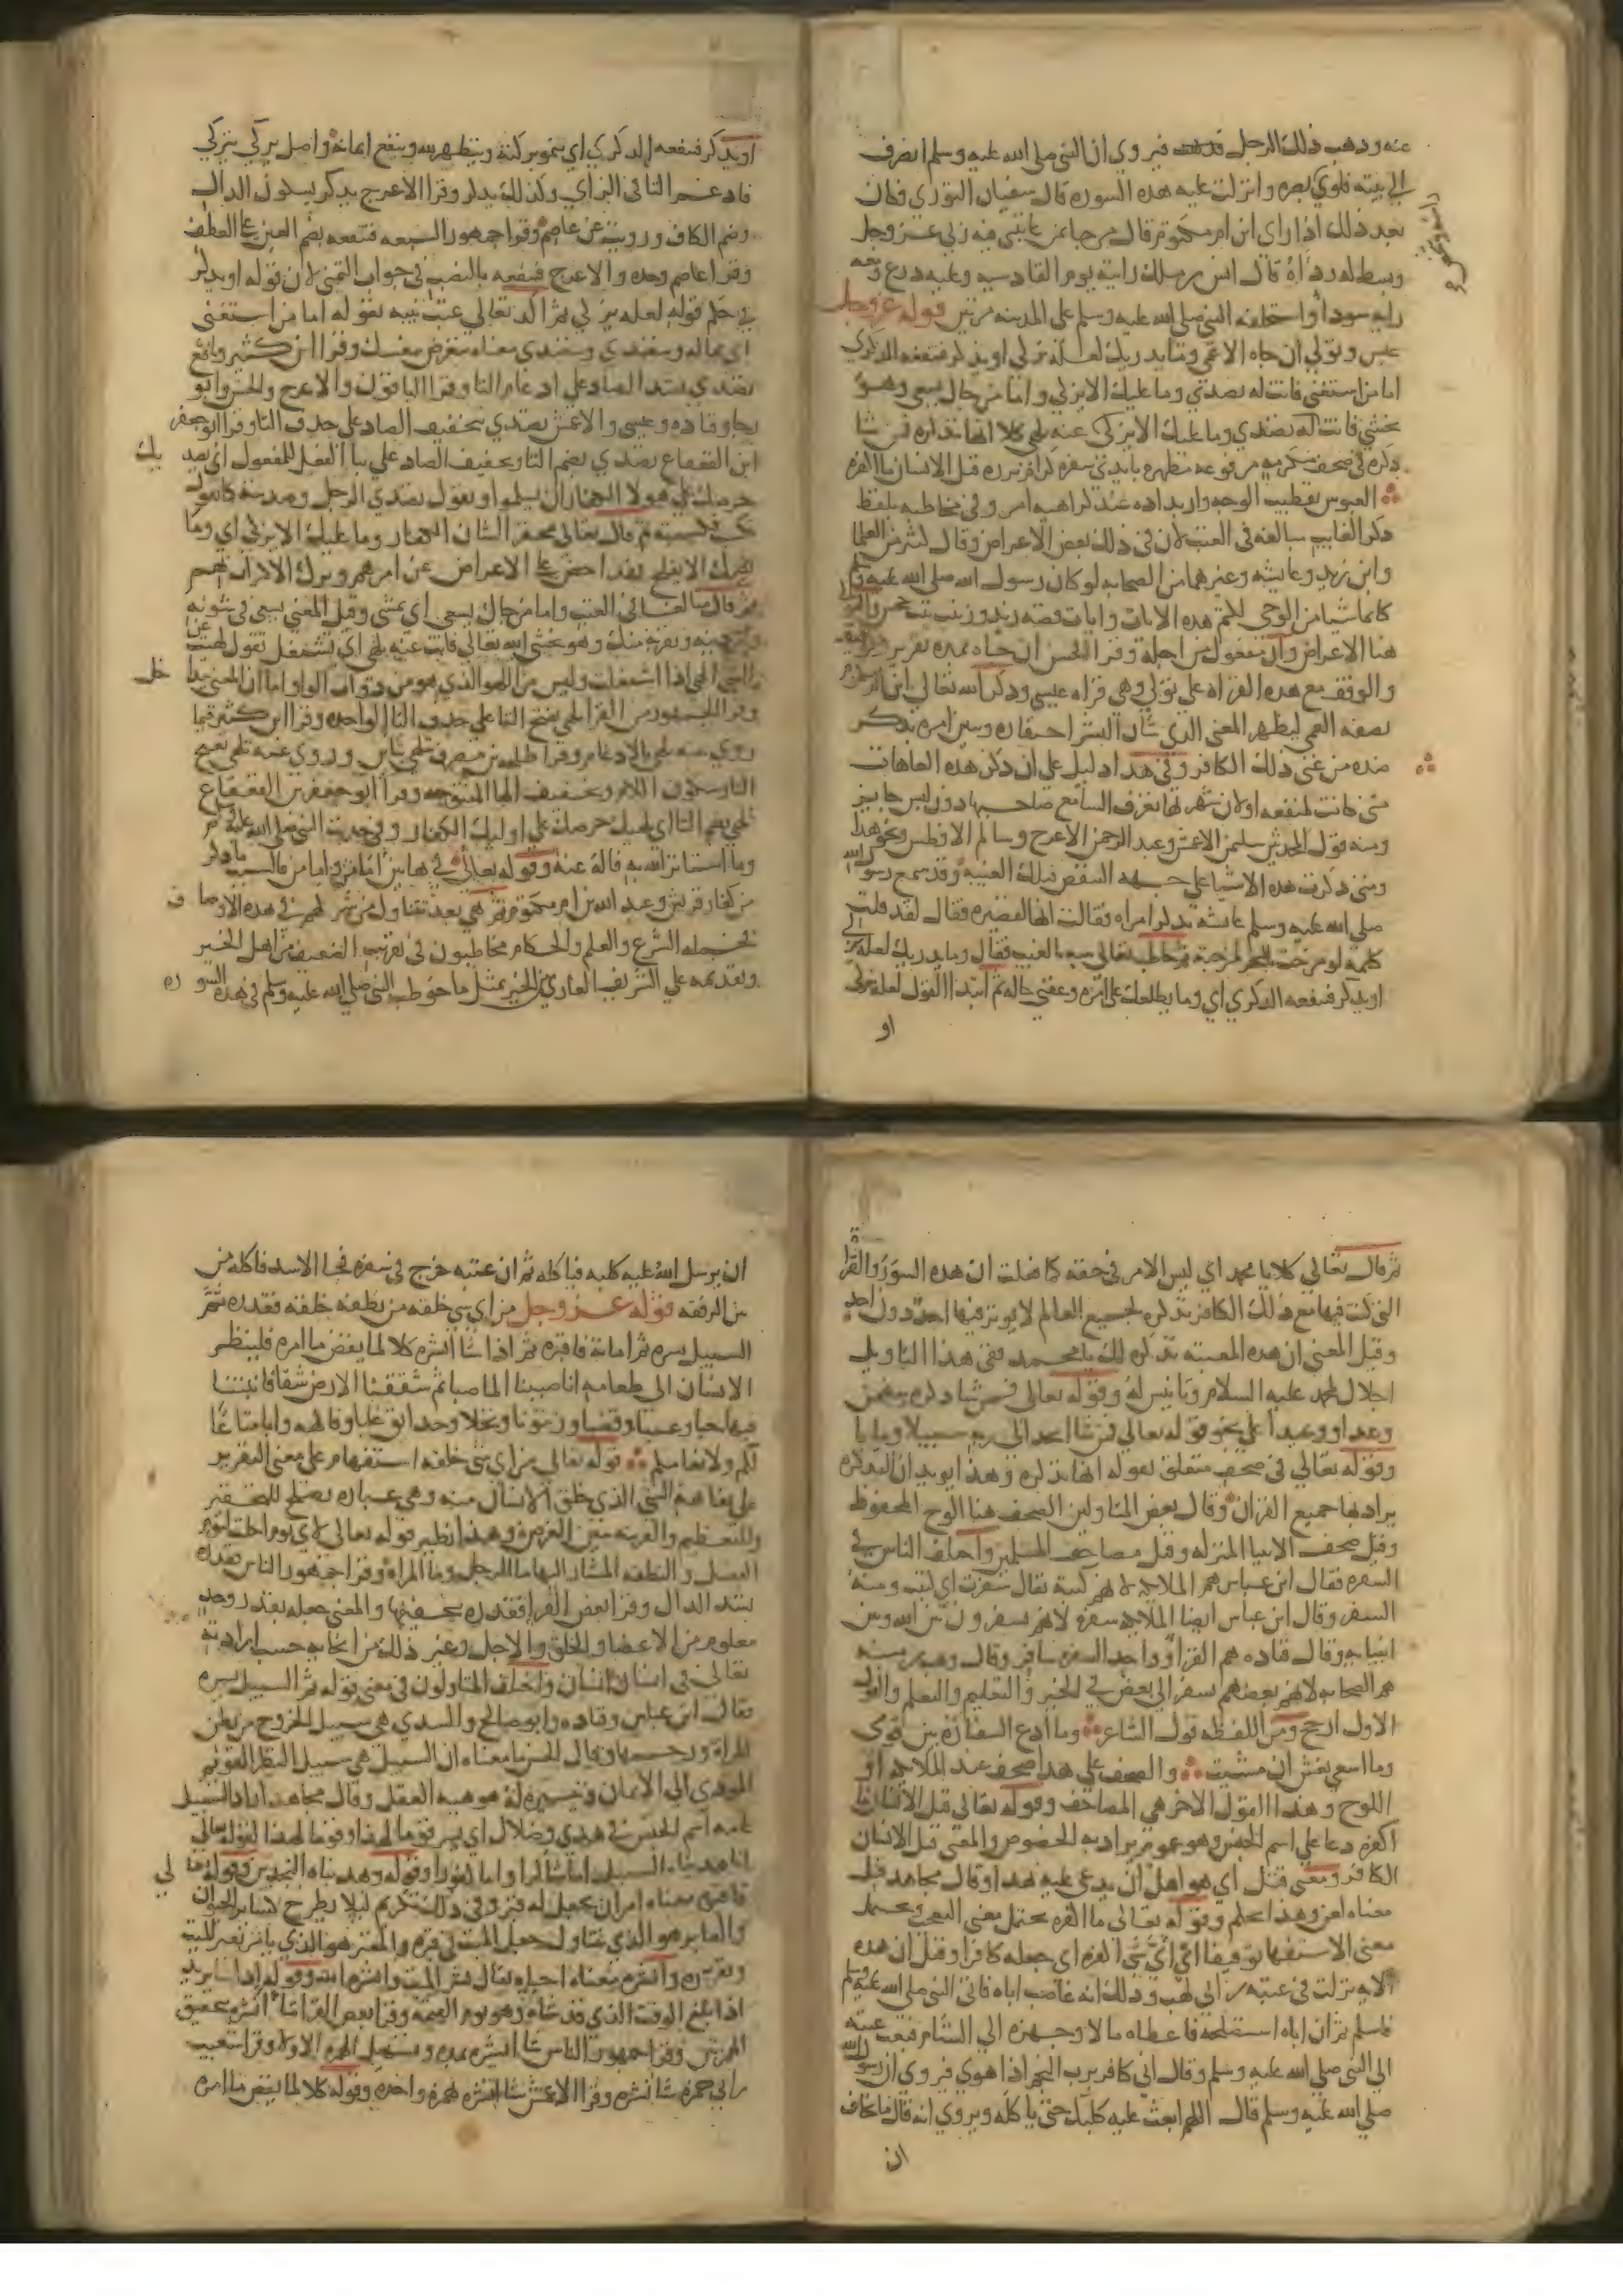 عنه وذهب ذلك الرجل فيروي ان النبي صلى الله عليه وسلم انصرف
الي بيته فلوي بصره وانزلت عليه هذه السوره قال سفيان الثوري فكان
بعد ذلك اذا راي ابن ام مكتوم قال مرحبا بمن عاتبني فيه ربي عز وجل
وبسط له رداه قال انس بن مالك رايته يوم القادسيه وعليه درع ومعه
رايه سودا واستخلفه النبي صلى الله عليه وسلم على المدينه مرتين قوله عز وجل
عبس وتولي ان جاه الاعمي وما يدريك لعله يزكي او يذكر فتنفعه الذكري
اما من استغني فانت له تصدي وما عليك الا يزكي واما من جاك يسعي وهو
يخشي فانت عنه تلهي كلا انها تذكره فمن شا
ذكره في صحف مكرمه مرفوعه مطهره بايدي سفره كرام برره قتل الانسان ما اكفره
العبوس تقطيب الوجه واربداده عند كراهيه امر وفي مخاطبته بلفظ
ذكر الغايب مبالغه في العتب لان في ذلك بعض الاعراض وقال كثير من العلما
وابن زيد وعايشه وغيرهما من الصحابه لو كان رسول الله صلى الله عليه وسلم
كاتما شيا من الوحي لكتم هذه الايات وايات قصه زيد وزينب بنت جحش والتولي
هنا الاعراض وان مفعول من اجله وقرا الحسن ان جاه بمده تقرير
والوقف مع هذه القراه علي تولي وهي قراه عيسي وذكر الله تعالي ابن ام مكتوم
بصفه العمي ليظهر المعني الذي شان البشر احتقاره وبين امره بذكر
ضده من غني ذلك الكافر وفي هذا دليل علي ان ذكر هذه العاهات
متي كانت لمنفعه او لان شهرتها تعرف السامع صاحبها دون لبس جايز
ومنه قول المحدثين سليمن الاعمش وعبد الرحمن الاعرج وسالم الافطس ونحو هذا
ومتي ذكرت هذه الاشيا علي جهه التنقص فتلك الغيبه وقد سمع رسول الله
صلي الله عليه وسلم عايشه تذكر امراه فقالت انها لقصيره فقال لقد قلت
كلمه لو مزجت بالبحر لمزجته ثم خاطب تعالي نبيه بالعتب فقال وما يدريك لعله يزكي
او يذكر فتنفعه الذكري اي وما يطلعك علي امره وعقبي حاله ثم ابتدا القول لعله يزكي
او
او يذكر فتنفعه الذكري اي تنمو بركته ويتطهر لله وينفع ايمانه واصل يزكي يتزكي
فادغمت التا في الزاي وكذلك يذكر وقرا الاعرج يذكر بسكون الدال
وضم الكاف ورويت عن عاصم وقرا جمهور السبعه فتنفعه بضم العين علي العطف
وقرا عاصم وحده والاعرج فتنفعه بالنصب في جواب التمني لان قوله او يذكر
في حكم قوله لعله يزكي ثم اكد تعالي عتب نبيه بقوله اما من استغني
اي بماله وتصدي معناه تتعرض بنفسك وقرا ابن كثير ونافع
تصدي بشد الصاد علي ادغام التا وقرا الباقون والاعرج والحسن وابو
رجا وقتاده وعيسي والاعمش تصدي بتخفيف الصاد علي حذف التا وقرا ابو جعفر
ابن القعقاع تصدي بضم التا وتخفيف الصاد علي بنا الفعل للمفعول اي يصديك
حرصك علي هولا الكفار ان يسلموا وتقول تصدي الرجل وصديته كما تقول
تكسب وكسبته ثم قال تعالي محقرا لشان الكفار وما عليك الا يزكي اي وما
يضرك الا يفلح فهذا حض علي الاعراض عن امرهم وترك الاكتراث بهم
ثم قال مبالغا في العتب واما من جاك يسعي اي يمشي وقيل المعني يسعي في شونه
وامر دينه وتقربه منك وهو يخشي الله تعالي فانت عنه تلهي اي تشتغل تقول لهيت عن
الشي الهي اذا اشتغلت وليس من اللهو الذي هو من ذوات الواو اما ان المعني يتداخل
وقرا الجمهور من القرا تلهي بفتح التا علي حذف التا الواحده وقرا ابن كثير فيما
روي عنه تلهي بالادغام وقرا طلحه بن مصرف تتلهي بتاين وروي عنه تلهي بفتح
التا وسكون اللام وتخفيف الها المفتوحه وقرا ابو جعفر بن القعقاع
تلهي بضم التا اي يلهيك حرصك علي اوليك الكفار وفي حديث النبي صلى الله عليه وسلم
وما استاثر الله به فاله عنه وقوله تعالي في هاتين اما من واما من فالسبب ما ذكر
من كفار قريش وعبد الله بن ام مكتوم ثم هي بعد تتناول من شركهم في هذه الاوصاف
فحمله الشرع والعلم والحكام مخاطبون في تقريب الضعيف من اهل الخير
وتقديمه علي الشريف العاري من الخير بمثل ما خوطب النبي صلى الله عليه وسلم في هذه السوره
ثم قال تعالي كلا يا محمد اي ليس الامر في حقه كما فعلت ان هذه السوره والقراه
التي كنت فيها مع ذلك الكافر تذكره لجميع العالم لا يوثر فيها احد دون احد
وقيل المعني ان هذه المعتبه تذكره لك يا محمد ففي هذا التاويل
اجلال لمحمد عليه السلام وتانيس له وقوله تعالي فمن شا ذكره يتضمن
وعدا ووعيدا علي نحو قوله تعالي فمن شا اتخذ الي ربه سبيلا وما با
وقوله تعالي في صحف متعلق بقوله انها تذكره وهذا يويد ان التذكره
يراد بها جميع القران وقال بعض المتاولين الصحف هنا اللوح المحفوظ
وقيل صحف الانبيا المنزله وقيل مصاحف المسلمين واختلف الناس في
السفره فقال ابن عباس هم الملايكه لانهم كتبه يقال سفرت اي كتبت ومنه
السفر وقال ابن عباس ايضا الملايكه سفره لانهم يسفرون بين الله وبين
انبيايه وقال قتاده هم القرا وواحد السفره سافر وقال وهب بن منبه
هم الصحابه لانهم بعضهم يسفر الي بعض في الخير والتعليم والتعلم والقول
الاول ارجح ومن اللفظه قول الشاعر وما ادع السفاره بين قومي
وما اسعي بغش ان مشيت والصحف علي هذا صحف عند الملايكه او
اللوح وهذا القول الاخر هي المصاحف وقوله تعالي قتل الانسان ما
اكفره دعا علي اسم الجنس وهو عموم يراد به الخصوص والمعني قتل الانسان
الكافر ومعني قتل اي هو اهل ان يدعي عليه بهذا وقال مجاهد قتل
معناه لعن وهذا تحكم وقوله تعالي ما اكفره يحتمل معني التعجب ويحتمل
معني الاستفهام توقيفا اي اي شي اكفره اي جعله كافرا وقيل ان هذه
الايه نزلت في عتبه بن ابي لهب وذلك انه غاضب اباه فاتي النبي صلى الله عليه وسلم
فاسلم ثم ان اباه استصلحه فاعطاه مالا وجهزه الي الشام فبعث عتبه
الي النبي صلى الله عليه وسلم وقال اني كافر برب النجم اذا هوي فيروي ان رسول الله
صلي الله عليه وسلم قال اللهم ابعث عليه كلبك حتي ياكله ويروي انه قال ما يخاف
ان
ان يرسل الله عليه كلبه فياكله ثم ان عتبه خرج في سفره فجا الاسد فاكله من
بين الرفقه قوله عز وجل من اي شي خلقه من نطفه خلقه فقدره ثم
السبيل يسره ثم اماته فاقبره ثم اذا شا انشره كلا لما يقض ما امره فلينظر
الانسان الي طعامه انا صببنا الما صبا ثم شققنا الارض شقا فانبتنا
فيها حبا وعنبا وقضبا وزيتونا ونخلا وحدايق غلبا وفاكهه وابا متاعا
لكم ولانعامكم قوله تعالي من اي شي خلقه استفهام علي معني التقرير
علي تفاهه الشي الذي خلق الانسان منه وهي عباره تصلح للتحقير
وللتعظيم والقرينه تبين الغرض وهذا نظير قوله تعالي لاي يوم اجلت ليوم
الفصل والنطفه المشار اليها ما الرجل وما المراه وقرا جمهور الناس فقدره
بشد الدال وقرا بعض القرا فقدره بتخفيفها والمعني جعله بقدر وحد
معلوم من الاعضا والخلق والاجل وغير ذلك من انحايه حسب ارادته
تعالي في انسان انسان واختلف المتاولون في معني قوله ثم السبيل يسره
فقال ابن عباس وقتاده وابو صالح والسدي هي سبيل الخروج من بطن
المراه ورحمها وقال الحسن ما معناه ان السبيل هي سبيل النظر القويم
المودي الي الايمان وتيسيره له هو هبه العقل وقال مجاهد اراد السبيل
عامه اسم الجنس في هدي وضلال اي يسر قوما لهذا وقوما لهذا كقوله تعالي
انا هديناه السبيل اما شاكرا واما كفورا وقوله وهديناه النجدين وقوله تعالي
فاقبره معناه امر ان يجعل له قبر وفي ذلك تكريم ليلا يطرح كساير الحيوان
والقابر هو الذي يتناول جعل الميت في قبره والمقبر هو الذي يامر بقبر الميت
ويقرره وانشره معناه احياه يقال نشر الميت وانشره الله وقوله اذا شا يريد
اذا بلغ الوقت الذي قد شاه وهو يوم القيمه وقرا بعض القرا شا انشره بتحقيق
الهمزتين وقرا جمهور الناس شا انشره بمده وتسهيل الهمزه الاولي وقرا شعيب
بن ابي حمزه شا نشره وقرا الاعمش شا انشره بهمزه واحده وقوله كلا لما يقض ما امره